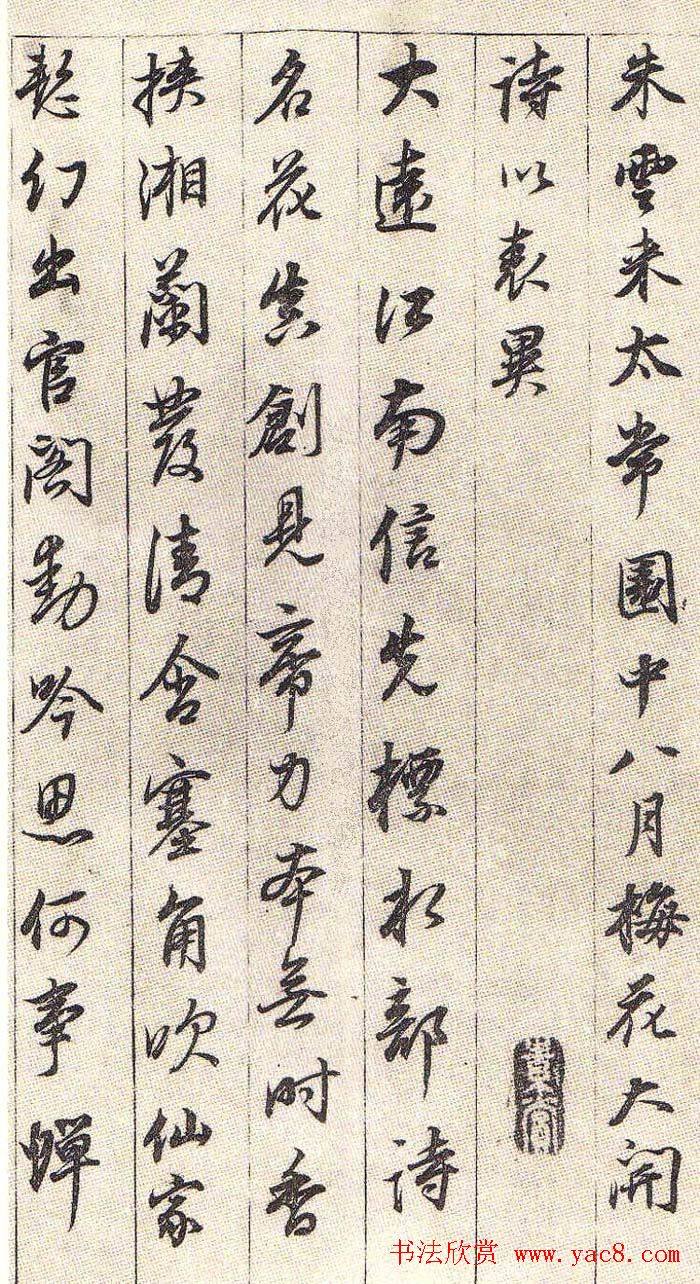 朱雲来太常園中八月梅花大開
詩以表異
大遠江南信先標水部詩
名花真創見帝力本無時香
挟湘蘭發清含塞角吹仙家
幻出官閣動吟思何事蟬
书法欣赏 www.yac8.com